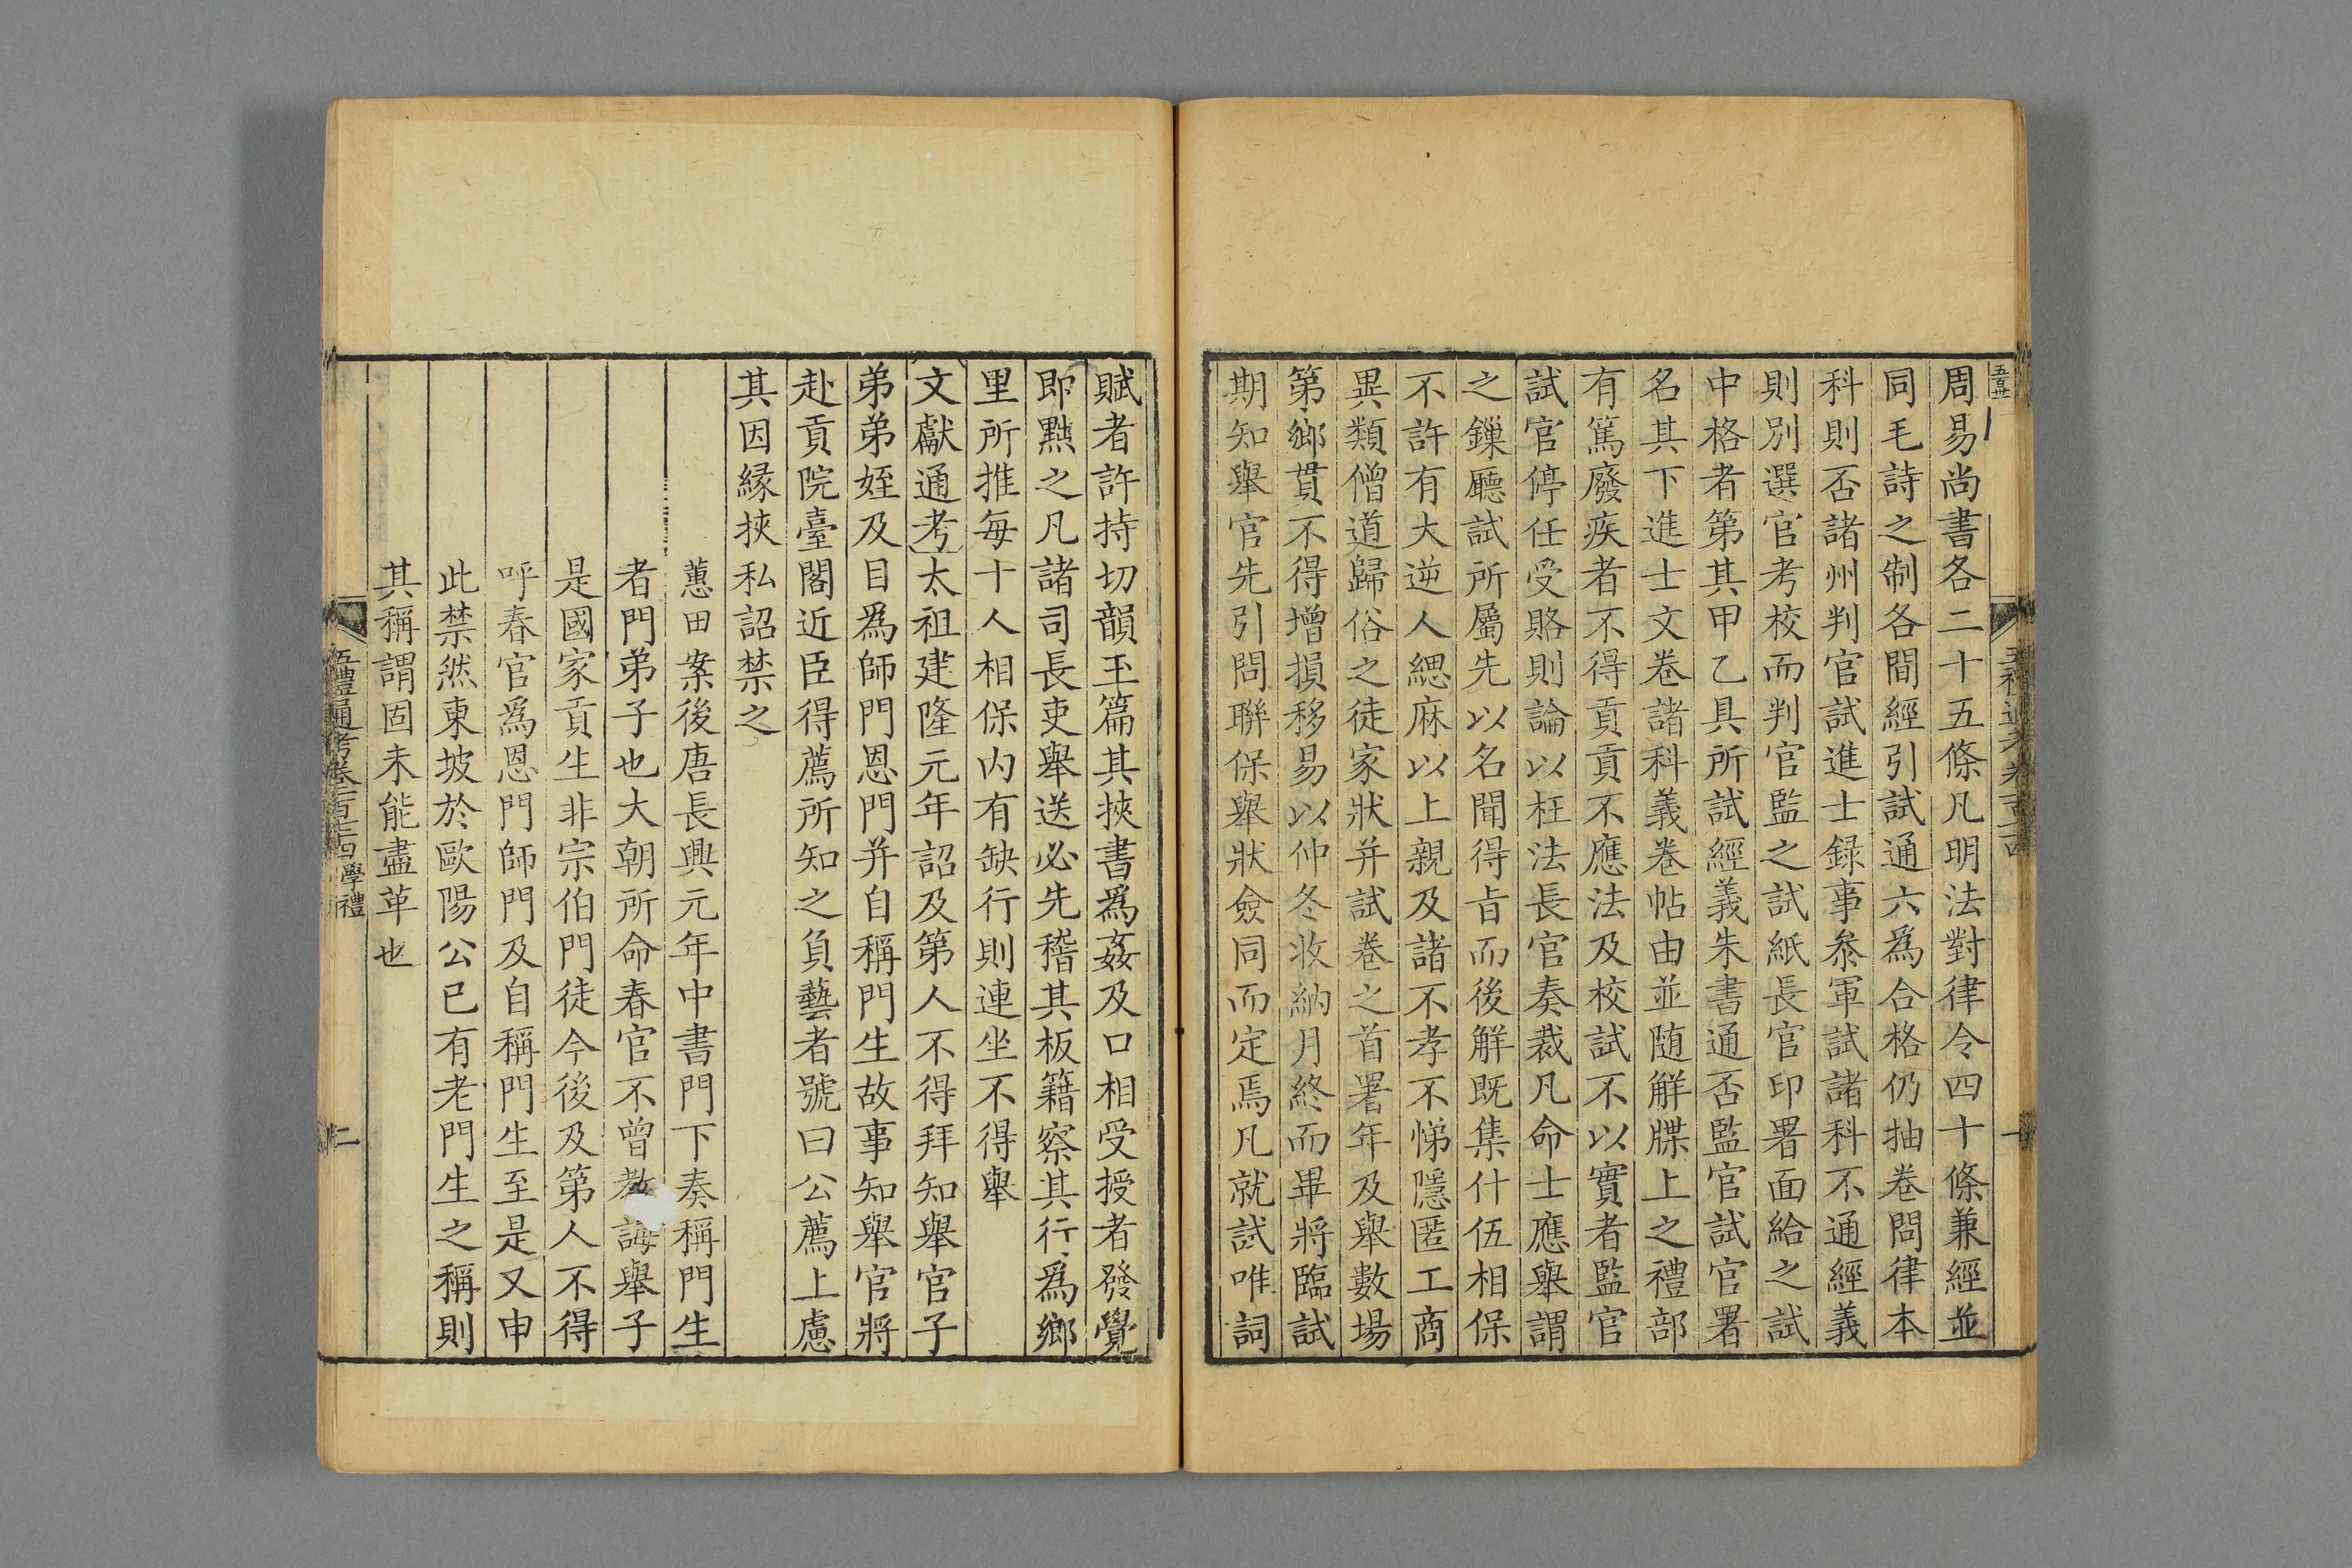 周易尚書各二十五條凡明法對律令四十條兼經並
同毛詩之制各間經引試通六爲合格仍抽卷問律本
科則否諸州判官試進士録事叅軍試諸科不通經義
則別選官考校而判官監之試紙長官印署面給之試
中格者第其甲乙具所試經義朱書通否監官試官署
名其下進士文卷諸科義卷帖由並随解牒上之禮部
有篤廢疾者不得貢貢不應法及校試不以實者監官
試官停任受賂則論以枉法長官奏裁凡命士應舉謂
之鏁廳試所屬先以名聞得㫖而後解既集什伍相保
不許有大逆人緦麻以上親及諸不孝不悌隱匿工商
異類僧道歸俗之徒家狀并試卷之首署年及舉數場
第鄉貫不得增損移易以仲冬收納月終而畢將臨試
期知舉官先引問聯保舉狀僉同而定焉凡就試唯詞
賦者許持切韻玉篇其挾書爲姦及口相受授者發覺
即黜之凡諸司長吏舉送必先稽其板籍察其行爲鄉
里所推每十人相保内有缺行則連坐不得舉
文獻通考太祖建隆元年詔及第人不得拜知舉官子
弟弟姪及目爲師門恩門并自稱門生故事知舉官將
赴貢院臺閣近臣得薦所知之負藝者號曰公薦上慮
其因縁挾私詔禁之
蕙田案後唐長興元年中書門下奏稱門生
者門弟子也大朝所命春官不曾教誨舉子
是國家貢生非宗伯門徒今後及第人不得
呼春官爲恩門師門及自稱門生至是又申
此禁然東坡於歐陽公已有老門生之稱則
其稱謂固未能盡革也
五禮通考卷一百七十四 學禮
二